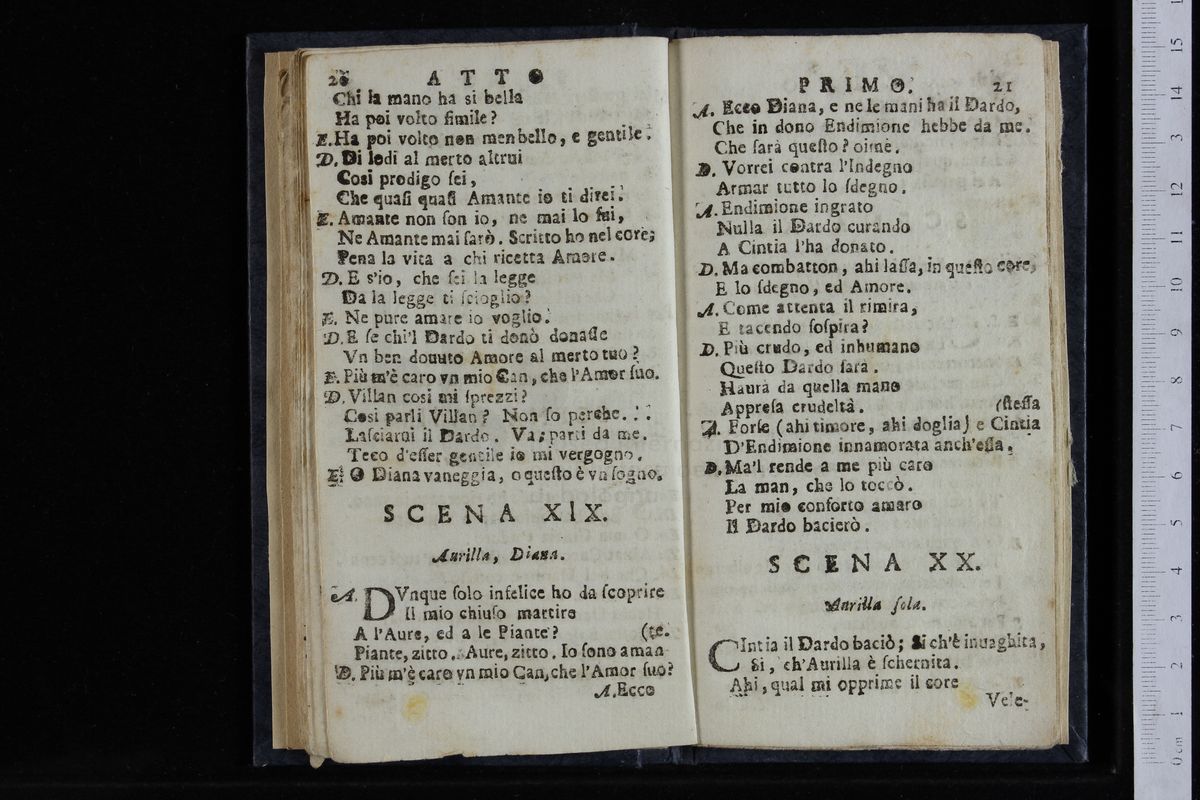 20 ATTO
Chi la mano ha si bella
Ha poi volto ſimile?
E. Ha poi volto non men bello, e gentile.
D. Di lodi al merto altrui
Cosi prodigo ſei,
Che quaſi quaſi Amante io ti direi.
E. Amante non ſon io, ne mai lo fui,
Ne Amante mai ſarò. Scritto ho nel core;
Pena la vita a chi ricetta Amore.
D. E s'io, che ſei la legge
Da la legge ti ſcioglio?
E. Ne pure amare io voglio.
D. E ſe chi'l Dardo ti donò donaſſe
Vn ben douuto Amore al merto tuo?
E. Più m'è caro vn mio Can, che l'Amor ſuo.
D. Villan cosi mi ſprezzi?
Cosi parli Villan? Non ſo perche...
Laſciami il Dardo. Va; parti da me.
Teco d'eſſer gentile io mi vergogno.
E. O Diana vaneggia, o queſto è vn ſogno.
SCENA XIX.
Aurilla, Diana.
A. DVnque ſolo infelice ho da ſcoprire
Il mio chiuſo martire
A l'Aure, ed a le Piante? (te.
Piante, zitto. Aure, zitto. Io ſono aman-
D. Più m'è caro vn mio Can, che l'Amor ſuo?
A. Ecco
PRIMO. 21
A. Ecco Diana, e ne le mani ha il Dardo,
Che in dono Endimione hebbe da me.
Che ſarà queſto? oimè.
D. Vorrei contra l'Indegno
Armar tutto lo ſdegno.
A. Endimione ingrato
Nulla il Dardo curando
A Cintia l'ha donato.
D. Ma combatton, ahi laſſa, in queſto core,
E lo ſdegno, ed Amore.
A. Come attenta il rimira,
E tacendo ſoſpira?
D. Più crudo, ed inhumano
Queſto Dardo ſarà.
Haurà da quella mano
Appreſa crudeltà. (ſteſſa
A. Forſe (ahi timore, ahi doglia) e Cintia
D'Endimione innamorata anch'eſſa.
D. Ma'l rende a me più caro
La man, che lo toccò.
Per mio conforto amaro
Il Dardo bacierò.
SCENA XX.
Aurilla ſola.
CIntia il Dardo baciò; Si ch'è inuaghita,
Si, ch'Aurilla è ſchernita.
Ahi, qual mi opprime il core
Vele-
0 cm 1 2 3 4 5 6 7 8 9 10 11 12 13 14 15